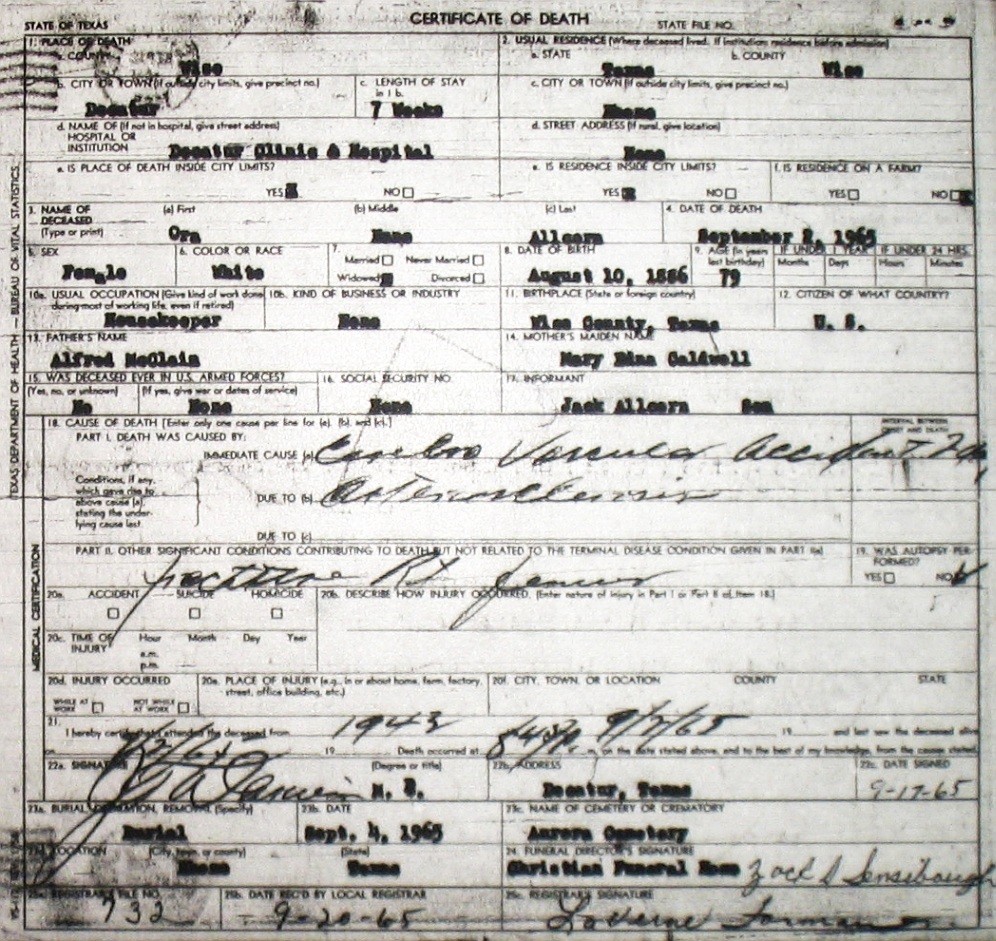 CERTIFICATE OF DEATH
STATE OF TEXAS STATE FILE NO.
1. PLACE OF DEATH 2. USUAL RESIDENCE (Where deceased lived. If institution: residence before admission)
a. COUNTY a. STATE b. COUNTY
Wise Texas Wise
b. CITY OR TOWN (If outside city limits, give precinct no.) c. LENGTH OF STAY in 1 b. c. CITY OR TOWN (If outside city limits, give precinct no.)
Decatur 7 Weeks Rhome
d. NAME OF (If not in hospital, give street address) HOSPITAL OR INSTITUTION d. STREET ADDRESS (If rural, give location)
Decatur Clinic & Hospital
e. IS PLACE OF DEATH INSIDE CITY LIMITS? e. IS RESIDENCE INSIDE CITY LIMITS? f. IS RESIDENCE ON A FARM?
YES NO YES NO YES NO
3. NAME OF DECEASED (Type or print) (a) First (b) Middle (c) Last 4. DATE OF DEATH
Ora Allcorn September 2, 1965
5. SEX 6. COLOR OR RACE 7. Married Never Married Widowed Divorced 8. DATE OF BIRTH 9. AGE (In years last birthday) IF UNDER 1 YEAR Months Days IF UNDER 24 HRS. Hours Minutes
Female White August 10, 1886 79
10a. USUAL OCCUPATION (Give kind of work done during most of working life, even if retired) 10b. KIND OF BUSINESS OR INDUSTRY 11. BIRTHPLACE (State or foreign country) 12. CITIZEN OF WHAT COUNTRY?
Housekeeper None Wise County, Texas U. S.
13. FATHER'S NAME 14. MOTHER'S MAIDEN NAME
Alfred McClain Mary Caldwell
15. WAS DECEASED EVER IN U.S. ARMED FORCES? 16. SOCIAL SECURITY NO. 17. INFORMANT
(Yes, no, or unknown) (If yes, give war or dates of service)
No None None Jack Allcorn Son
18. CAUSE OF DEATH [Enter only one cause per line for (a), (b), and (c).] INTERVAL BETWEEN ONSET AND DEATH
PART I. DEATH WAS CAUSED BY:
IMMEDIATE CAUSE (a) Cerebro Vascular Accident
Conditions, if any, which gave rise to above cause (a), stating the underlying cause last.
DUE TO (b) Arteriosclerosis
DUE TO (c)
PART II. OTHER SIGNIFICANT CONDITIONS CONTRIBUTING TO DEATH BUT NOT RELATED TO THE TERMINAL DISEASE CONDITION GIVEN IN PART I(a) 19. WAS AUTOPSY PERFORMED?
Fracture Rt femur YES NO
20a. ACCIDENT SUICIDE HOMICIDE 20b. DESCRIBE HOW INJURY OCCURRED. (Enter nature of injury in Part I or Part II of item 18.)
20c. TIME OF INJURY Hour Month Day Year
a.m.
p.m.
20d. INJURY OCCURRED 20e. PLACE OF INJURY (e.g., in or about home, farm, factory, street, office building, etc.) 20f. CITY, TOWN, OR LOCATION COUNTY STATE
WHILE AT WORK NOT WHILE AT WORK
21. I hereby certify that I attended the deceased from 1943 9/2/65 19 and last saw the deceased alive
on 19 Death occurred at m. on the date stated above, and to the best of my knowledge, from the causes stated.
22a. SIGNATURE (Degree or title) 22b. ADDRESS 22c. DATE SIGNED
M. D. Decatur, Texas 9-17-65
23a. BURIAL, CREMATION, REMOVAL (Specify) 23b. DATE 23c. NAME OF CEMETERY OR CREMATORY
Burial Sept. 4, 1965 Aurora Cemetery
23d. LOCATION (City, town, or county) (State) 24. FUNERAL DIRECTOR'S SIGNATURE
Rhome Texas Christian Funeral Home Zack D Sensibaugh
25a. REGISTRAR'S FILE NO. 25b. DATE REC'D BY LOCAL REGISTRAR 25c. REGISTRAR'S SIGNATURE
732 9-20-65 LaVerne Forman
TEXAS DEPARTMENT OF HEALTH — BUREAU OF VITAL STATISTICS
MEDICAL CERTIFICATION